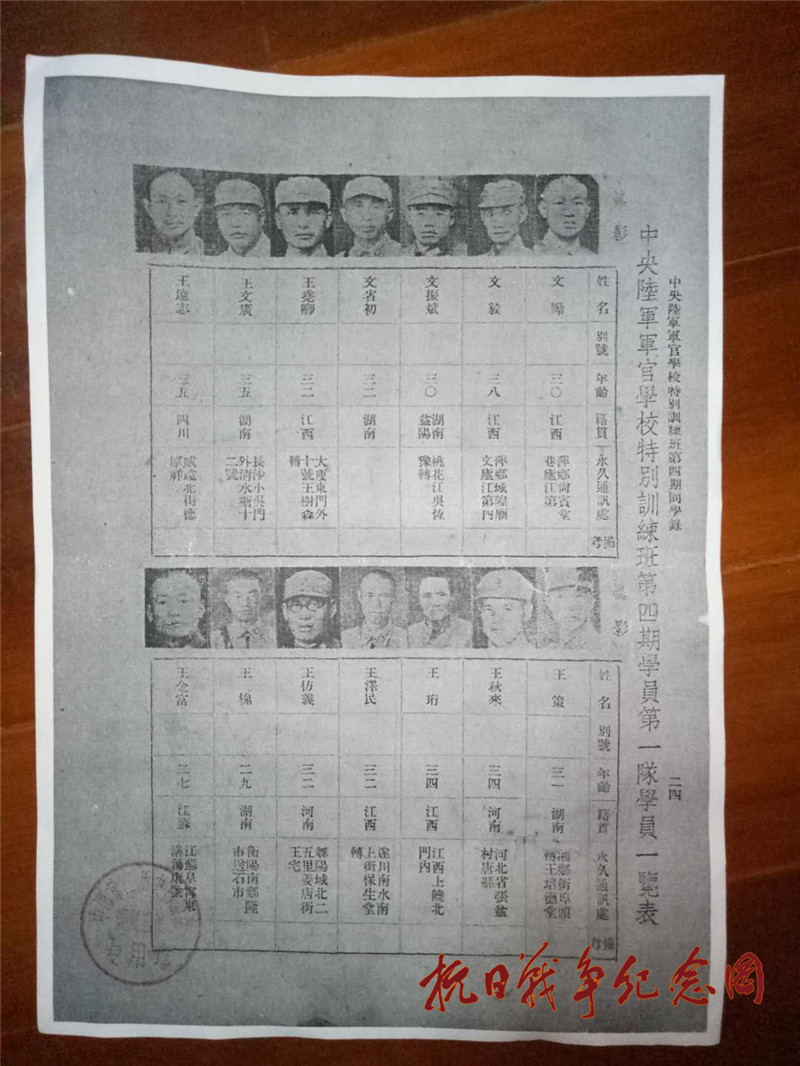 中央陸軍軍官學校特別訓練班第四期同學錄
二四
中央陸軍軍官學校特別訓練班第四期學員第一隊學員一覽表
影
姓名
別號
年齡
籍貫
永久通訊處
備考
文勵
三〇
江西
萍鄉尚賓堂
巷廬江第
文毅
三八
江西
萍鄉城隍廟
文廬江第內
文振斌
三〇
湖南
益陽
桃花江吳恆
豫轉
文省初
三二
湖南
王堯卿
三二
江西
大廈東門外
十號王樹森
轉
王文廣
三五
湖南
長沙小吳門
外清水塘十
二號
王遠志
三五
四川
威遠北街德
厚祥
影
姓名
別號
年齡
籍貫
永久通訊處
備考
王策
三一
湖南
鄉街埠頭
轉王培德堂
王秋來
三四
河南
河北省張盆
村唐縣
王珩
三四
江西
江西上饒北
門內
王澤民
三二
江西
遂川南水南
上街保生堂
轉
王仿義
三二
河南
舞陽城北二
五里姜店街
王宅
王槐
二九
湖南
衡陽南鄉隆
市送石市
王金富
三七
江蘇
江蘇阜寧東
溝海康號
抗日战争纪念网